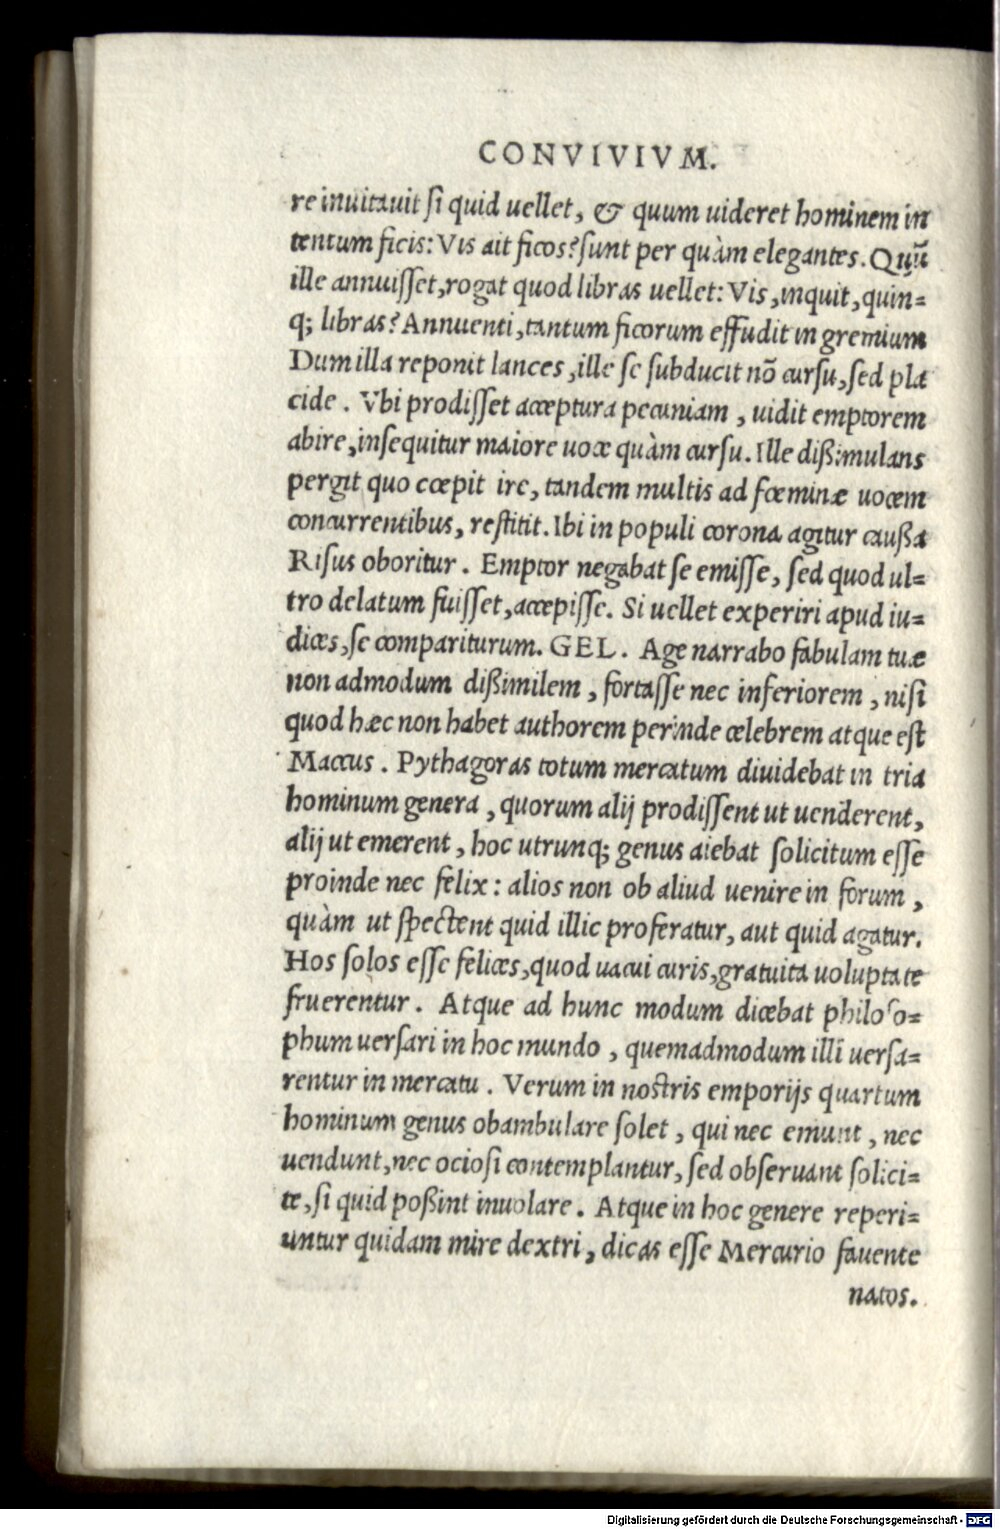 CONVIVIVM.
re inuitauit ſi quid uellet, & quum uideret hominem in
tentum ficis: Vis ait ficos? ſunt per quàm elegantes. Quũ
ille annuiſſet, rogat quod libras uellet: Vis, inquit, quin=
q; libras? Annuenti, tantum ficorum effudit in gremium
Dum illa reponit lances, ille ſe ſubducit nõ curſu, ſed pla
cide. Vbi prodiſſet acceptura pecuniam, uidit emptorem
abire, inſequitur maiore uoce quàm curſu. Ille dißimulans
pergit quo cœpit ire, tandem multis ad fœminæ uocem
concurrentibus, reſtitit. Ibi in populi corona agitur caußa
Riſus oboritur. Emptor negabat ſe emiſſe, ſed quod ul=
tro delatum fuiſſet, accepiſſe. Si uellet experiri apud iu=
dices, ſe compariturum. GEL. Age narrabo fabulam tuæ
non admodum dißimilem, fortaſſe nec inferiorem, niſi
quod hæc non habet authorem perinde celebrem atque eſt
Maccus. Pythagoras totum mercatum diuidebat in tria
hominum genera, quorum alij prodiſſent ut uenderent,
alij ut emerent, hoc utrunq; genus aiebat ſolicitum eſſe
proinde nec felix: alios non ob aliud uenire in forum,
quàm ut ſpectent quid illic proferatur, aut quid agatur.
Hos ſolos eſſe felices, quod uacui curis, gratuita uoluptate
fruerentur. Atque ad hunc modum dicebat philoſo=
phum uerſari in hoc mundo, quemadmodum illi uerſa=
rentur in mercatu. Verum in noſtris emporijs quartum
hominum genus obambulare ſolet, qui nec emunt, nec
uendunt, nec ocioſi contemplantur, ſed obſeruant ſolici=
te, ſi quid poßint inuolare. Atque in hoc genere reperi=
untur quidam mire dextri, dicas eſſe Mercurio fauente
natos.
Digitalisierung gefördert durch die Deutsche Forschungsgemeinschaft - DFG